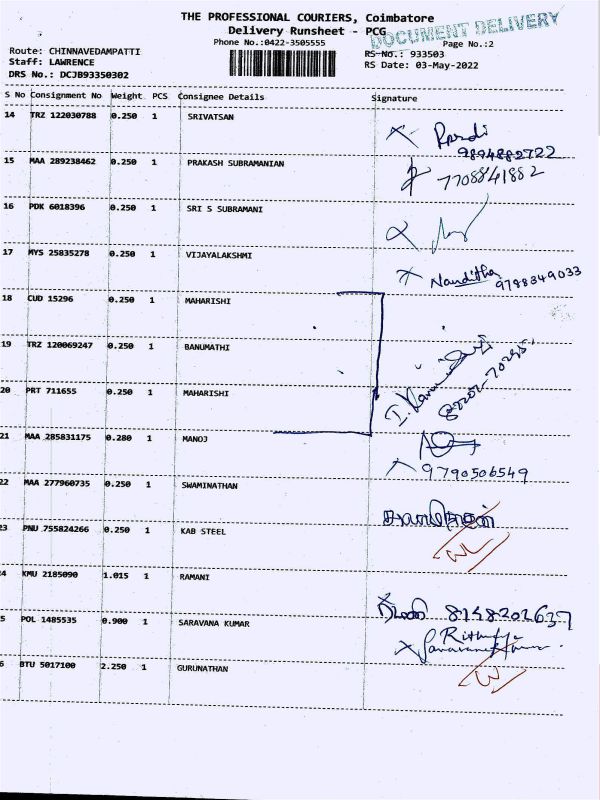 THE PROFESSIONAL COURIERS, Coimbatore
Delivery Runsheet - PCG
DOCUMENT DELIVERY
Phone No.:0422-3505555
Page No.:2
Route: CHINNAVEDAMPATTI
RS No.: 933503
Staff: LAWRENCE
RS Date: 03-May-2022
DRS No.: DCJB93350302
S No Consignment No Weight PCS Consignee Details Signature
14 TRZ 122030788 0.250 1 SRIVATSAN
9894882722
15 MAA 289238462 0.250 1 PRAKASH SUBRAMANIAN
7708841882
16 PDK 6018396 0.250 1 SRI S SUBRAMANI
17 MYS 25835278 0.250 1 VIJAYALAKSHMI
Nanditha 9788349033
18 CUD 15296 0.250 1 MAHARISHI
19 TRZ 120069247 0.250 1 BANUMATHI
20 PRT 711655 0.250 1 MAHARISHI
21 MAA 285831175 0.280 1 MANOJ
9790506549
22 MAA 277960735 0.250 1 SWAMINATHAN
23 PNU 755824266 0.250 1 KAB STEEL
4 KMU 2185090 1.015 1 RAMANI
8148202637
5 POL 1485535 0.900 1 SARAVANA KUMAR
6 BTU 5017100 2.250 1 GURUNATHAN